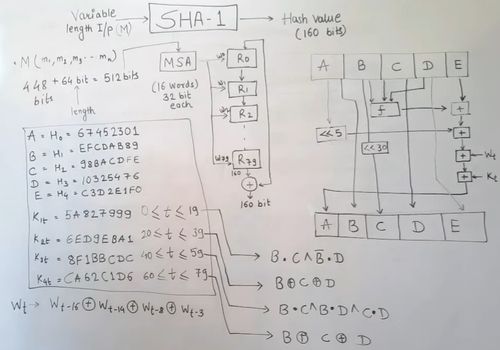 Variable length I/p (M)
SHA-1
Hash value (160 bits)
• M (m₁, m₂, m₃ --- mₙ)
448 + 64 bit = 512 bits
bits
length
MSA
(16 words)
32 bit
each
W0
R0
W1
R1
W2
R2
W79
R79
160
+
160 bit
A = H0 = 67452301
B = H1 = EFCDAB89
C = H2 = 98BACDFE
D = H3 = 10325476
E = H4 = C3D2E1F0
K1t = 5A827999 0 ≤ t ≤ 19
K2t = 6ED9EBA1 20 ≤ t ≤ 39
K3t = 8F1BBCDC 40 ≤ t ≤ 59
K4t = CA62C1D6 60 ≤ t ≤ 79
Wt → Wt-16 ⊕ Wt-14 ⊕ Wt-8 ⊕ Wt-3
A B C D E
f
+
<<5
+
<<30
+ Wt
+ Kt
A B C D E
B • C ∧ B̄ • D
B ⊕ C ⊕ D
B • C ∧ B • D ∧ C • D
B ⊕ C ⊕ D